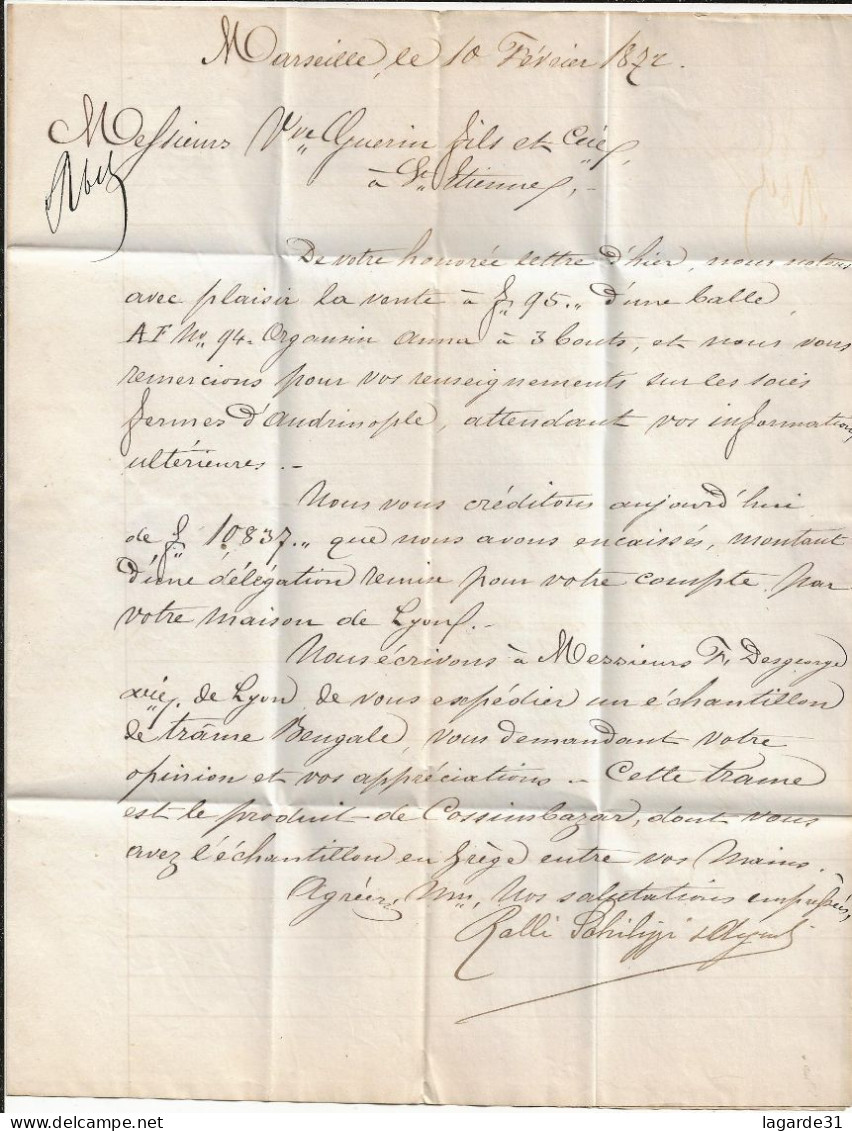 Marseille, le 10 Février 1872.
Messieurs Vve Guerin fils et Cie,
à St. Etienne, -
De votre honorée lettre d'hier, nous notons
avec plaisir la vente à f. 95.„ d'une balle
AF No. 94. Organsin Anna à 3 bouts, et nous vous
remercions pour vos renseignements sur les soies
fermes d'Andrinople, attendant vos informations
ultérieures. -
Nous vous créditons aujourd'hui
de f. 10837.„ que nous avons encaissés, montant
d'une délégation remise pour votre compte par
votre maison de Lyon. -
Nous écrivons à Messieurs F. Desgeorge
& Cie, de Lyon de vous expédier un échantillon
de trâme Bengale, vous demandant votre
opinion et vos appréciations. - Cette trame
est le produit de Cossimbazar, dont vous
avez l'échantillon en grège entre vos mains.
Agréez, Mrs, nos salutations empressées,
Ralli Schilizzi & Argenti
lagarde31